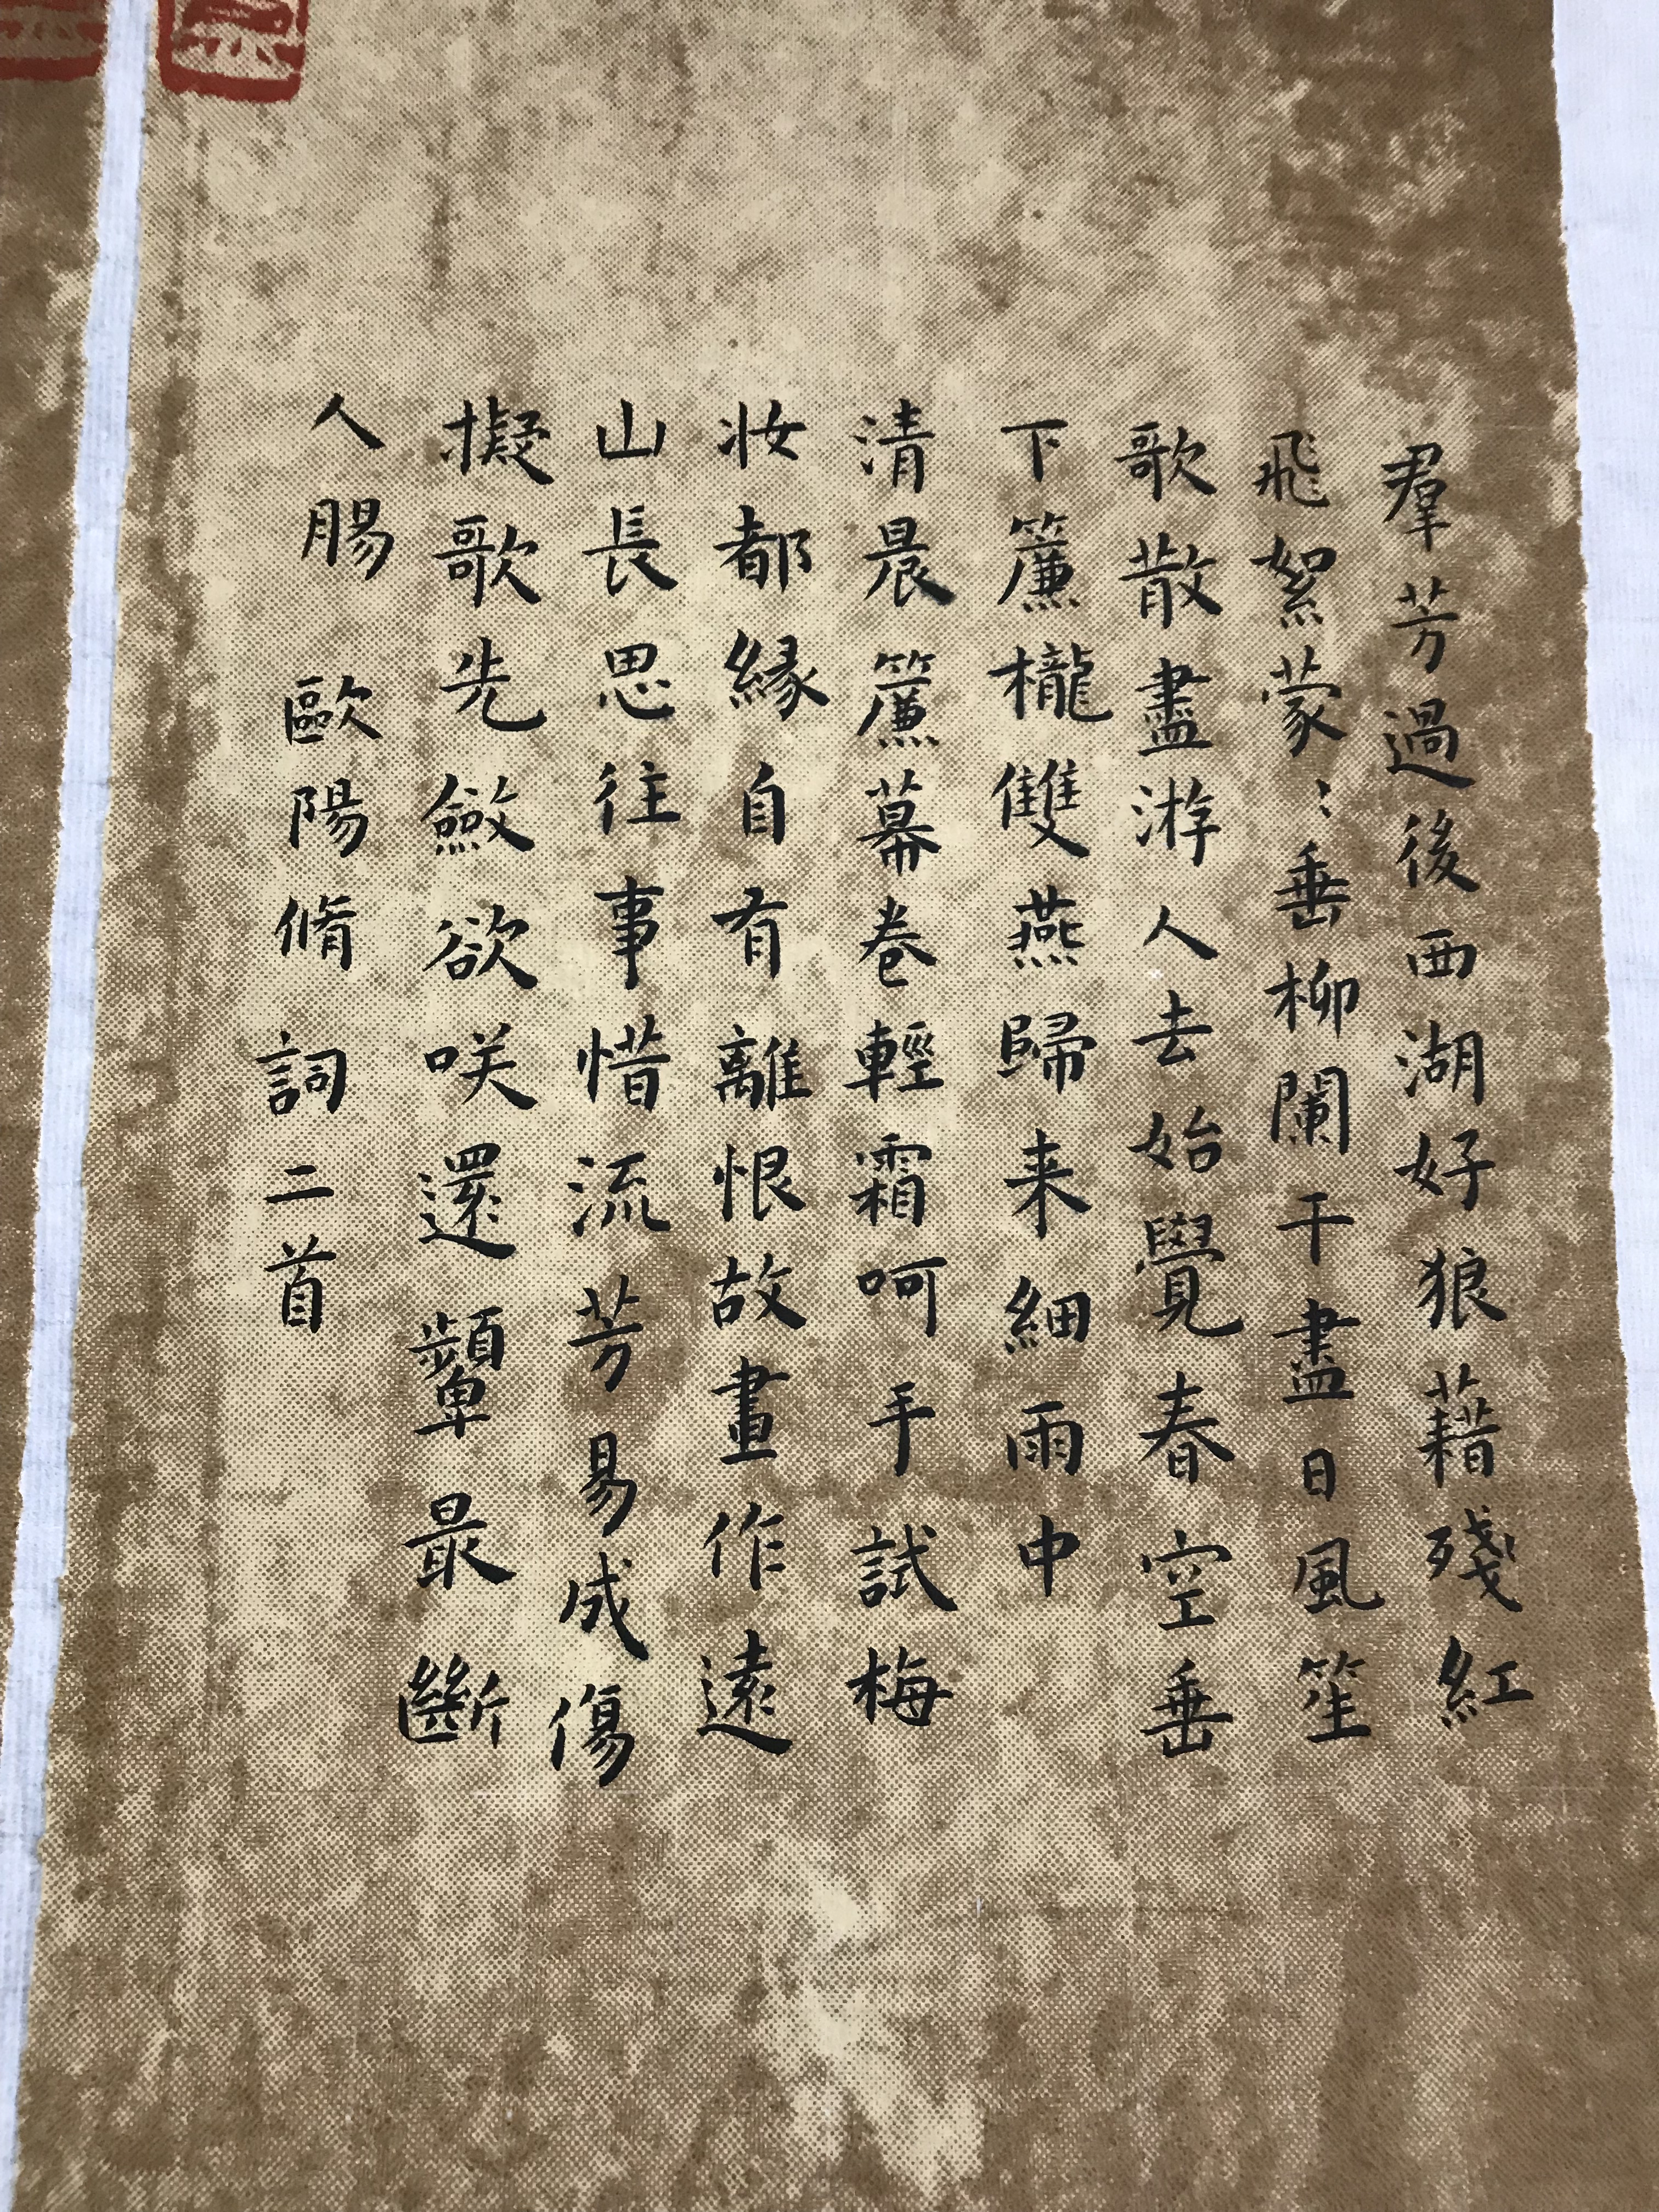 羣芳過後西湖好狼藉殘紅
飛絮蒙〻垂柳闌干盡日風笙
歌散盡游人去始覺春空垂
下簾櫳雙燕歸来細雨中
清晨簾幕卷輕霜呵手試梅
妝都緣自有離恨故畫作遠
山長思往事惜流芳易成傷
擬歌先斂欲咲還顰最斷
人腸 歐陽脩詞二首